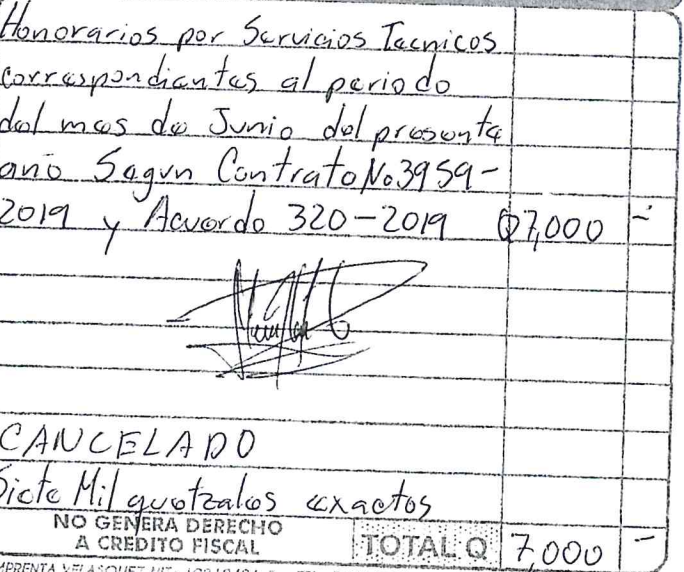 Honorarios por Servicios Tecnicos
correspondientes al periodo
del mes de Junio del presente
año Segun Contrato No 3959-
2019 y Acuerdo 320-2019 Q7,000 -
CANCELADO
Siete Mil quetzales exactos
NO GENERA DERECHO
A CREDITO FISCAL
TOTAL Q 7,000 -
IMPRENTA VELASQUEZ